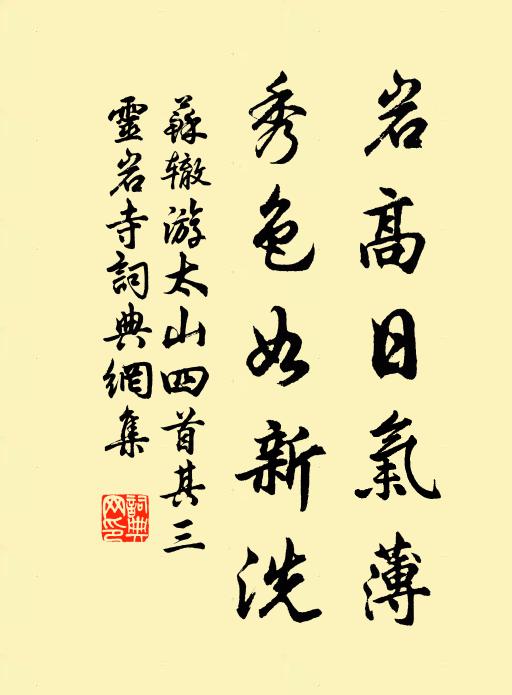 岩高日氣薄
秀色如新洗
蘇辙游太山四首其三
靈岩寺詞典網集
詞典
网印